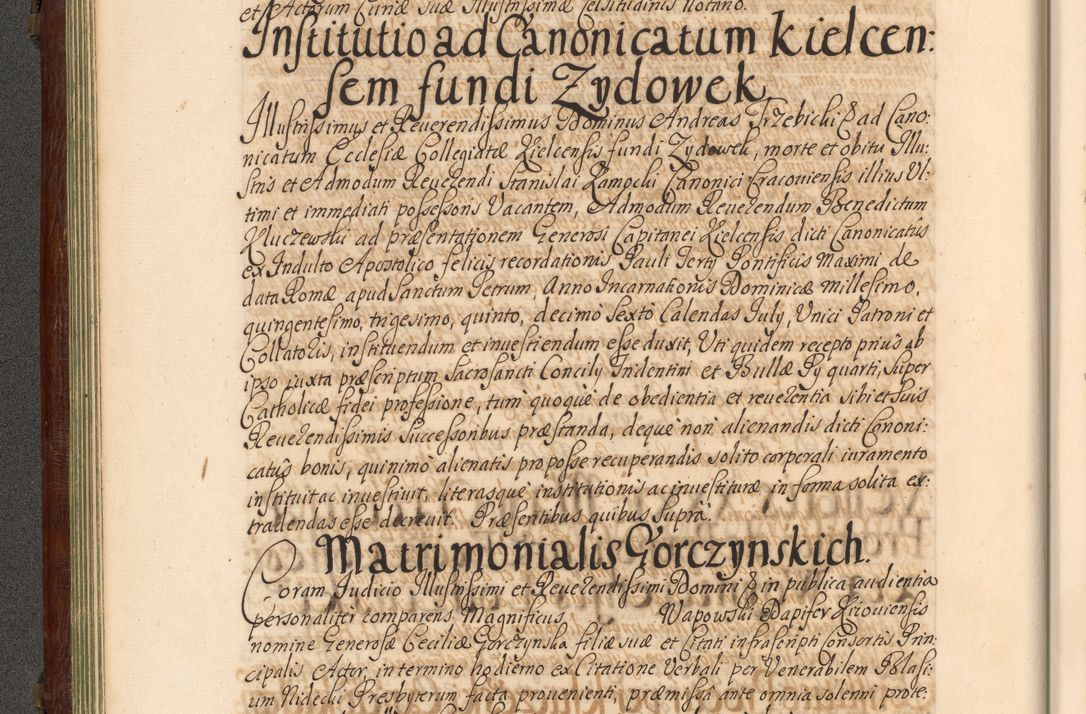 et Actorum Curiæ Suæ Illustrissimæ Celsitudinis Notario.
Institutio ad Canonicatum Kielcen:
sem fundi Zydowek
Illustrissimus et Reuerendissimus Dominus Andreas Trzebicki & ad Cano:
nicatum Ecclesiæ Collegiatæ Kielcensis fundi Zydowek, morte et obitu Illu:
stris et Admodum Reuerendi Stanislai Zamocki Canonici Cracouiensis illius Ul:
timi et immediati possessoris Vacantem, Admodum Reuerendum Benedictum
Kluczewski ad præsentationem Generosi Capitanei Kielcensis dicti Canonicatûs
ex Indulto Apostolico felicis recordationis Pauli Tertÿ Pontificis Maximi de
data Romæ apud Sanctum Petrum, Anno Incarnationis Dominicæ millesimo,
quingentesimo, trigesimo, quinto, decimo Sexto Calendas July, Unici Patroni et
Collatoris, instituendum et inuestiendum esse duxit, Uti quidem recepto priûs ab
ipso iuxta præscriptum Sacrosancti Concily Tridentini et Bullæ Py quarti, Super
Catholicæ fidei professione, tum quoque de obedientia et reuerentia Sibi et Suis
Reuerendissimis Successoribus præstanda, deque non alienandis dicti Canoni:
catûs bonis, quinimo alienatis pro posse recuperandis solito corporali iuramento
instituit ac inuestiuit, literasque institutionis ac inuestituræ in forma solita ex:
tradendas esse decreuit. Præsentibus quibus Supra.
Matrimonialis Gorczynskich.
Coram Judicio Illustrissimi et Reuerendissimi Domini & in publica audientia
personaliter comparens Magnificus Vapowski Dapifer Kiouiensis
nomine Generosæ Ceciliæ Gorczynska filiæ suæ et Citati infrascripti Consortis Prin:
cipalis Actor, in termino hodierno ex Citatione Verbali per Venerabilem Blasi:
um Nidecki Presbyterum facta prouenienti, præmissâ ante omnia solenni prote: